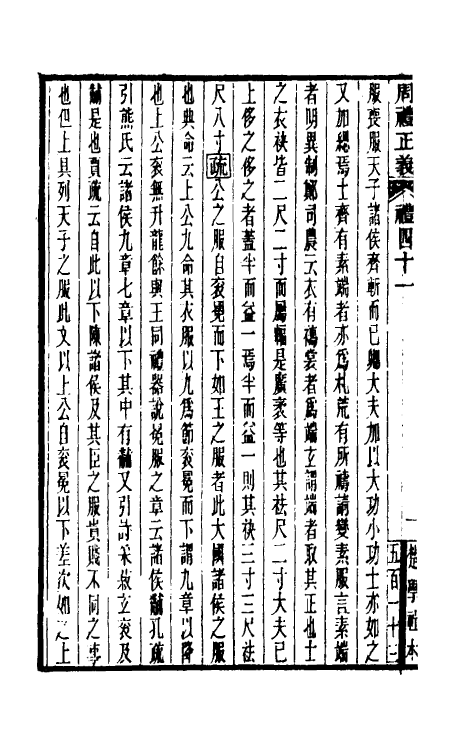 周禮正義 禮四十一
一 楚學社本
五百一十三
服喪服天子諸侯齊斬而已卿大夫加以大功小功士亦如之
又加緦焉士齊有素端者亦爲札荒有所禱請變素服言素端
者明異制鄭司農云衣有𥜗裳者爲端玄謂端者取其正也士
之衣袂皆二尺二寸而屬幅是廣袤等也其袪尺二寸大夫已
上侈之侈之者蓋半而益一焉半而益一則其袂三寸三尺袪
尺八寸疏公之服自袞冕而下如王之服者此大國諸侯之服
也典命云上公九命其衣服以九爲節袞冕而下謂九章以降
也上公袞無升龍餘與王同禮器說冕服之章云諸侯黼孔疏
引熊氏云諸侯九章七章以下其中有黼又引詩采菽玄袞及
黼是也賈疏云自此以下陳諸侯及其臣之服貴賤不同之事
也但上具列天子之服此文以上公自袞冕以下差次如之上